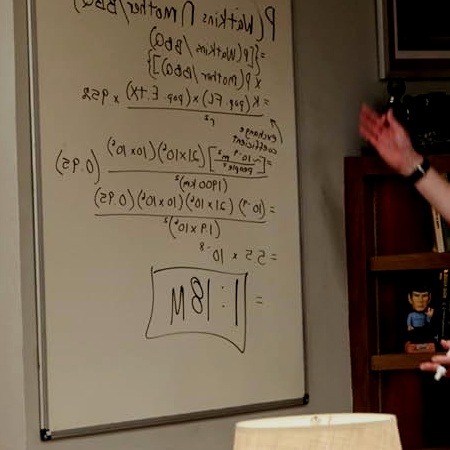 P(Watkins ∩ Mother/BBQ)
= {[P(Watkins/BBQ)
x P(Mother/BBQ)]}
= K (pop. FL) x (pop. E.TX) x 95%
r²
exchange
coefficient
= [~10⁻⁹ m² / people²] (21x10⁶)(10x10⁶) (0.95)
(1900km)²
= (10⁻⁹) (21x10⁶)(10x10⁶)(0.95)
(1.9x10⁶)²
= 5.5 x 10⁻⁸
= 1:18M